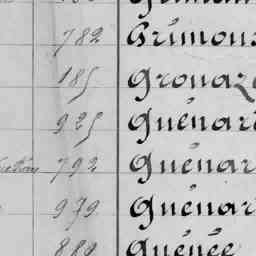 782 Grimous
185 Grouaz
925 Guénar
792 Guénar
979 Guénar
889 Guénée